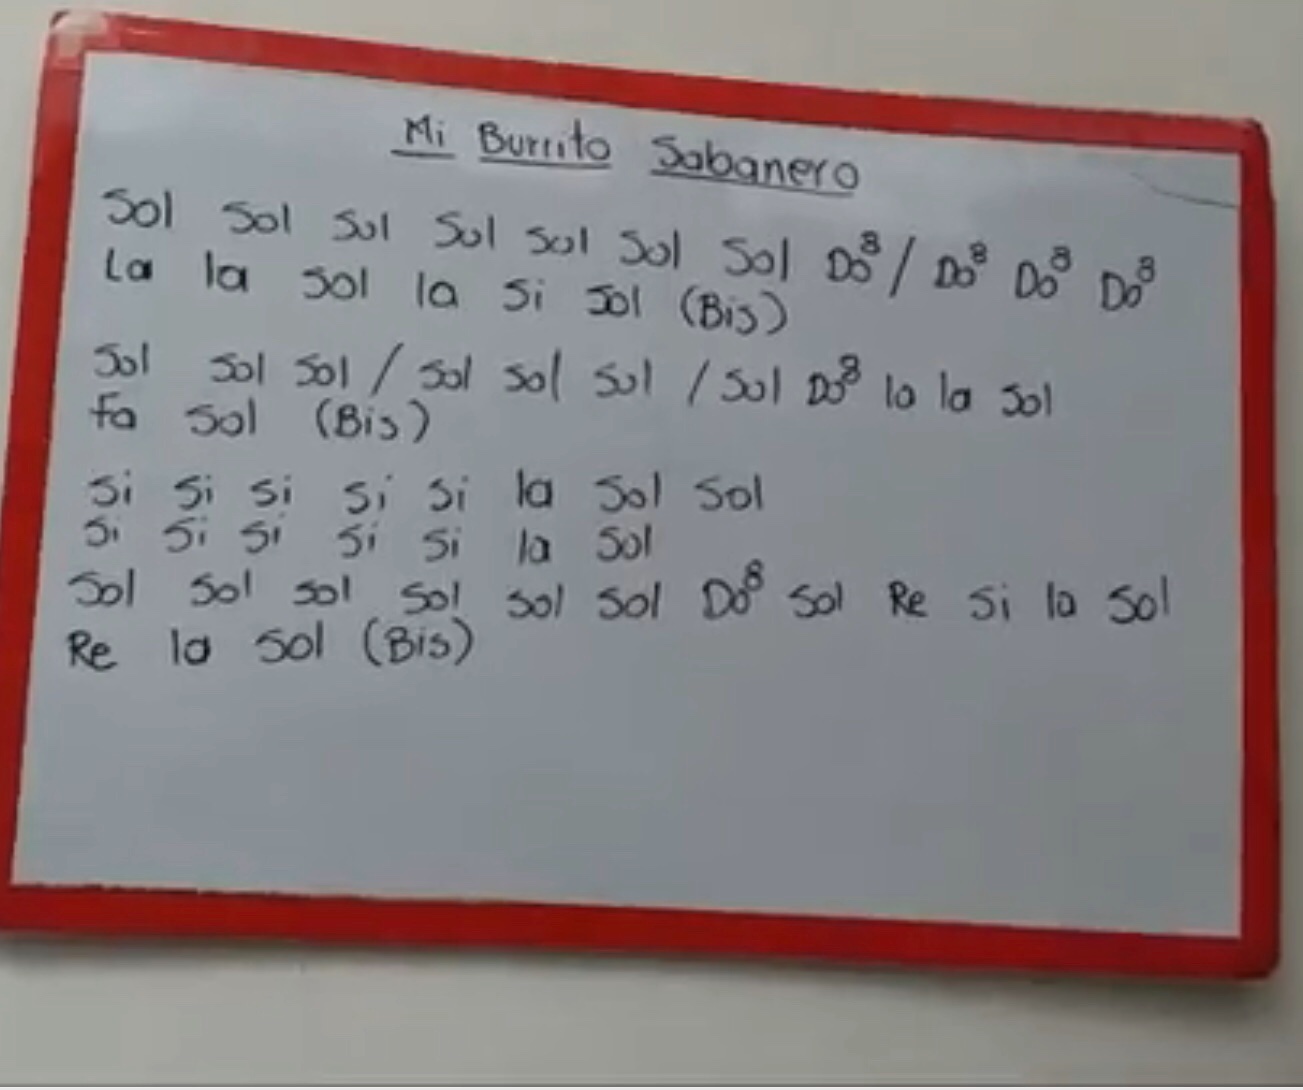 Mi Burrito Sabanero
Sol Sol Sol Sol Sol Sol Sol Do⁸ / Do⁸ Do⁸ Do⁸
La la sol la si sol (Bis)
Sol sol sol / sol sol sol / sol Do⁸ la la sol
fa sol (Bis)
Si si si si si la sol sol
Si si si si si la sol
Sol sol sol sol sol sol Do⁸ sol Re si la sol
Re la sol (Bis)